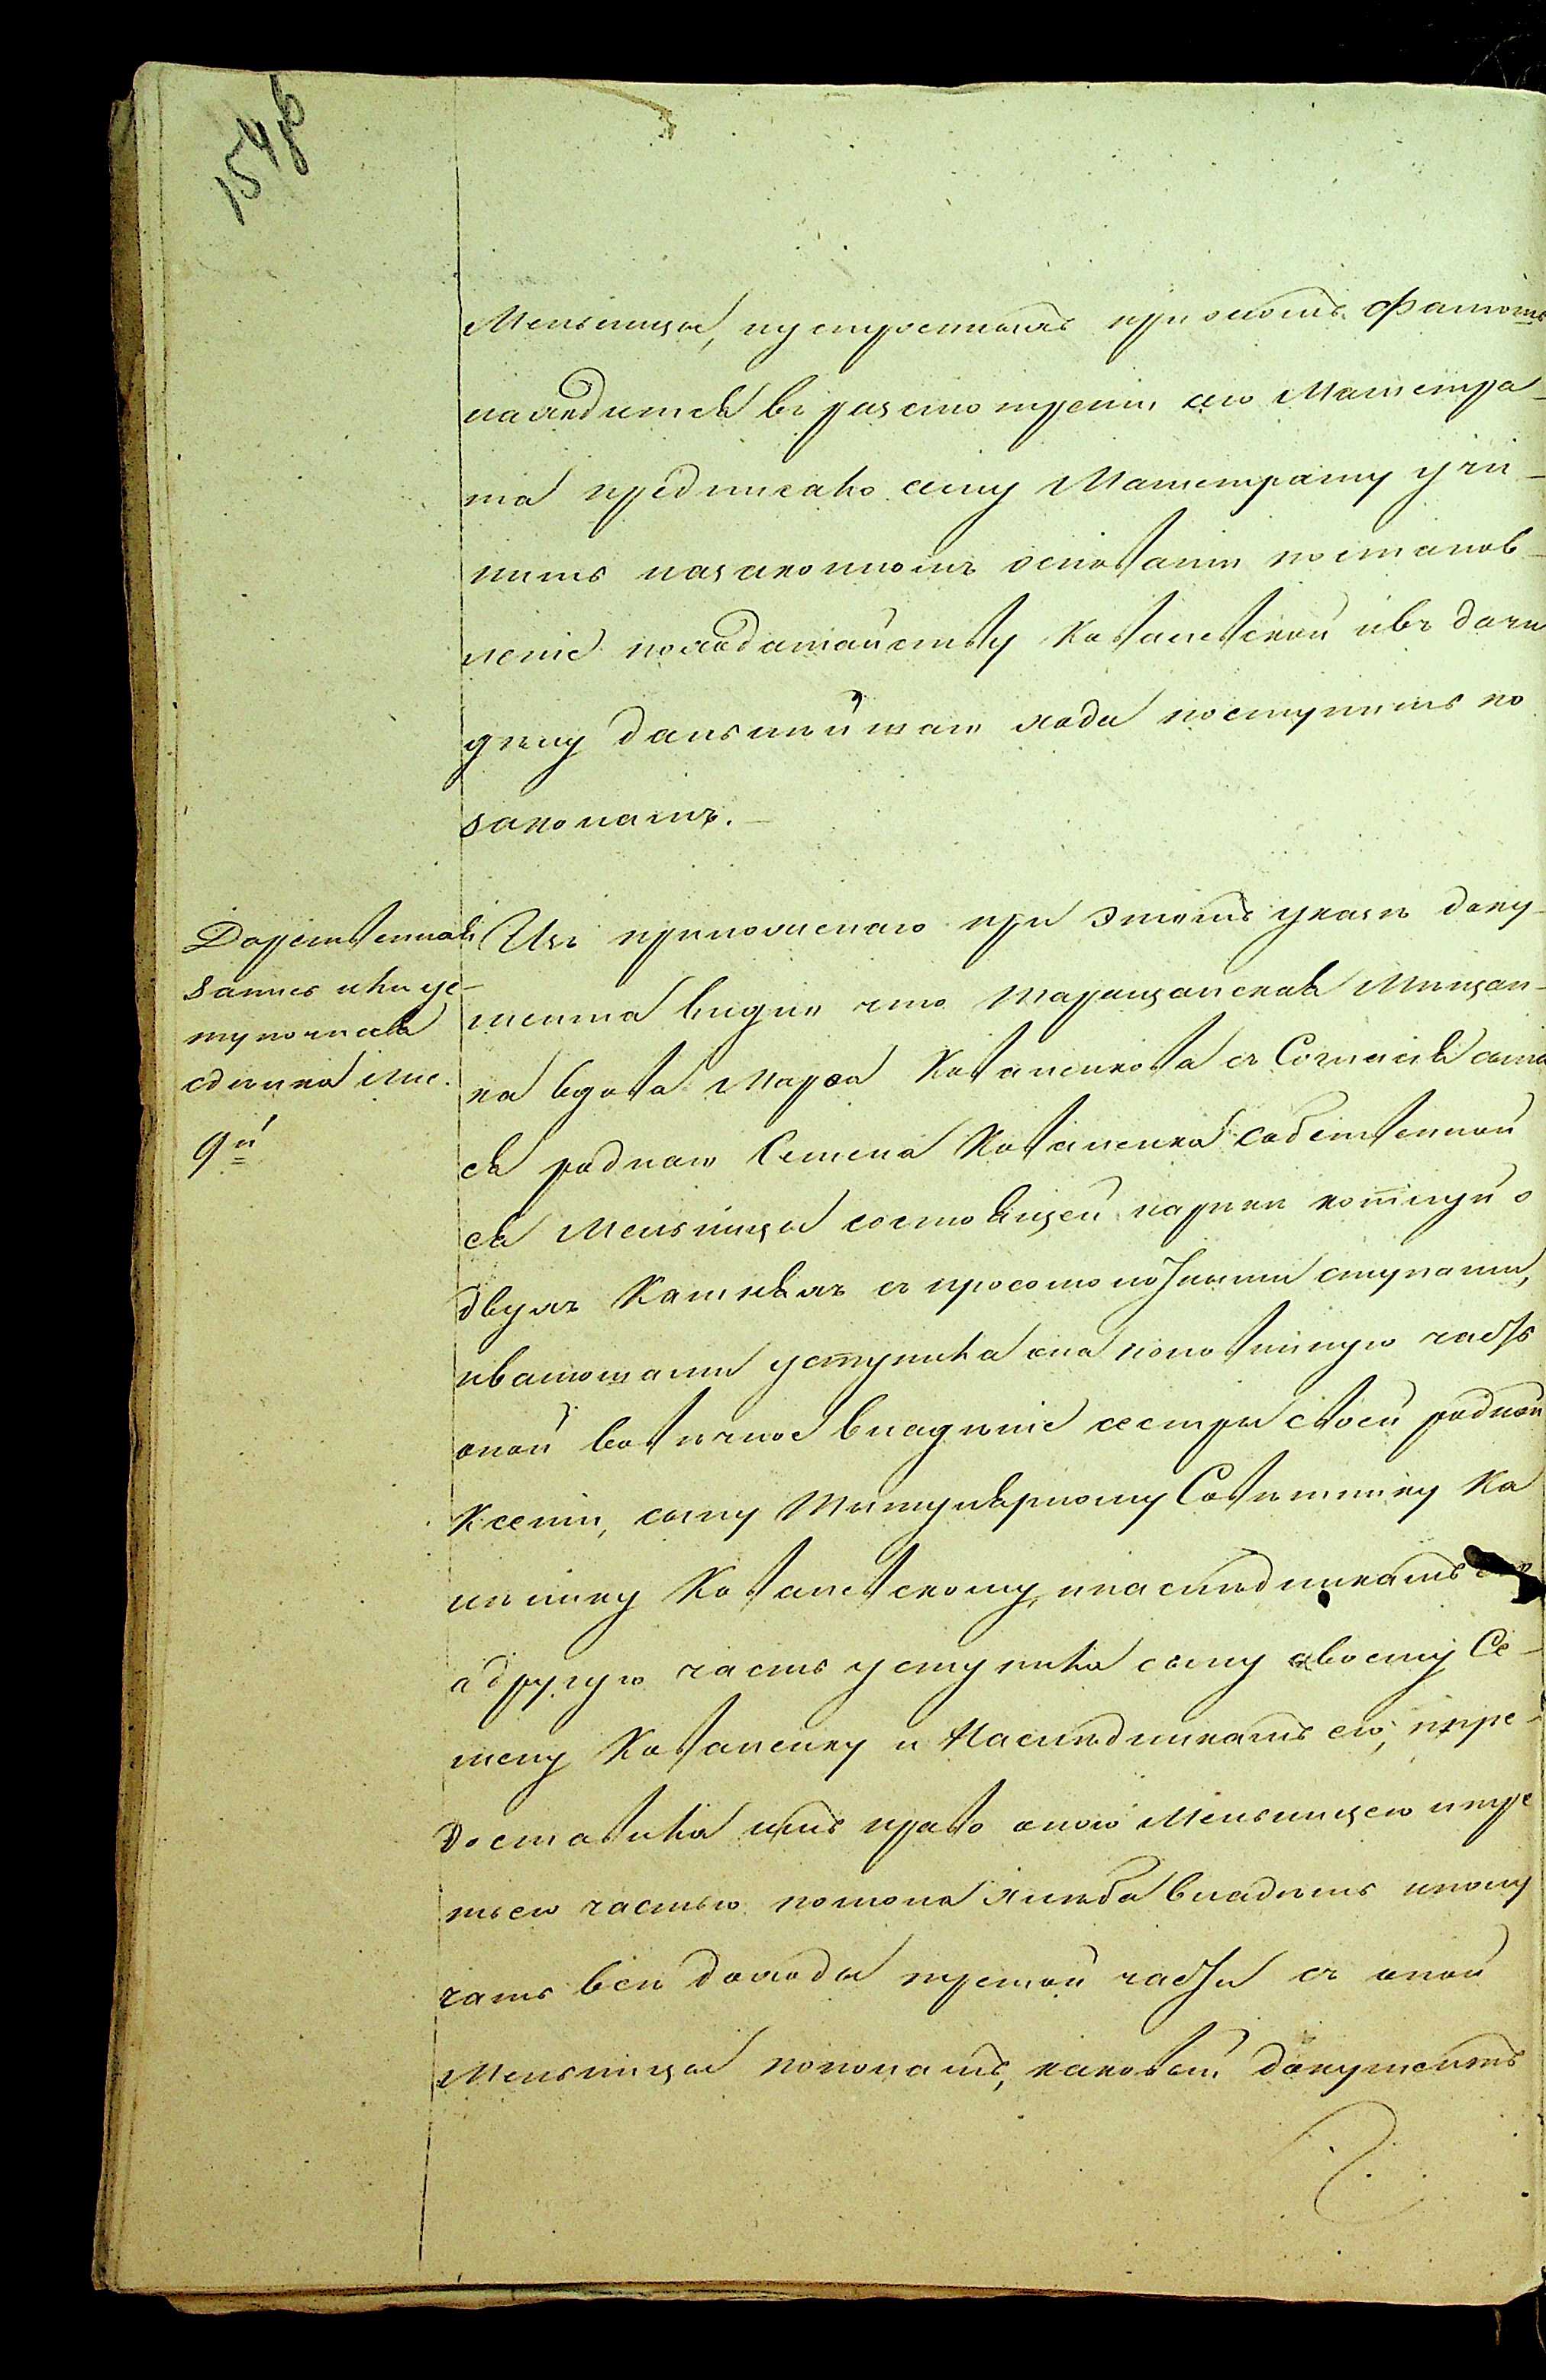 154 об
Мельницы, пустроенныхъ при ономъ Фатомъ
находится въ разсмотреніи сего Магистра-
та предписало сему Магистрату учи-
нить на законномъ основаніи постанов-
леніе по ходатайству Ковалевской и въ дачи
делу дальнейшаго хода поступить по
законамъ. —
Дарственная
запись или ус-
тупочная
сделка лис.
9й
Изъ приложенаго при этомъ указе доку-
мента видно что Таращанская Мещан-
ка вдова Марфа Коваленкова съ Согласія сына
ея роднаго Семена Коваленка собственной
ея Мельницы состоящей на реке
двухъ Камняхъ съ просомолотными ступами,
и валюшами уступила она половинную часть
оной въ вечное владеніе сестры своей родной
Ксеніи, сыну Титулярному Советнику Ка
линику Ковалевскому, и наследникамъ его
а другую часть уступила сыну своему Се-
мену Коваленку и Наследникамъ его, пре-
доставила имъ право оною Мельницею и тре
тьею частью помола хлеба владеть и полу
чать все доходы третой части съ оной
Мельницы пополамъ, каковый документъ